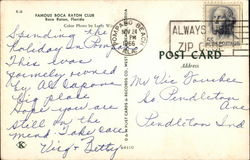 FAMOUS BOCA RATON CLUB
Boca Raton, Florida
Color Photo by
Spending the
Holiday in Pom
This was
formerly owned
by Al Capone
Big Place
Hope you are
still on the
mend Take care
Virg + Betty
POMPANO BEACH
NOV 24
1966
ALWAYS USE
ZIP CODE
POST CARD
Address
Mr Vic
So Pendleton Ave
Pendleton Ind
K